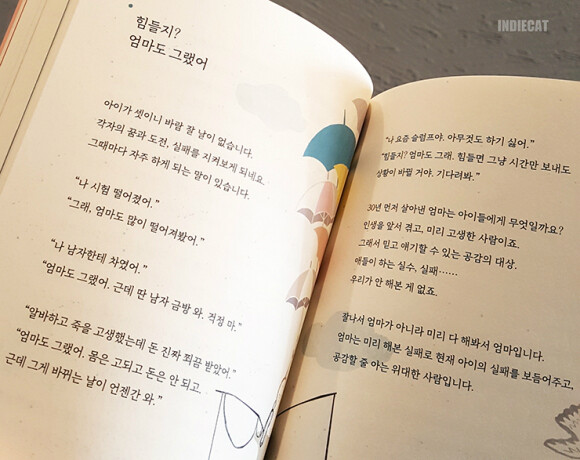 힘들지?
엄마도 그랬어
아이가 셋이니 바람 잘 날이 없습니다.
각자의 꿈과 도전, 실패를 지켜보게 되네요.
그때마다 자주 하게 되는 말이 있습니다.
“나 시험 떨어졌어.”
“그래, 엄마도 많이 떨어져봤어.”
“나 남자한테 차였어.”
“엄마도 그랬어. 근데 딴 남자 금방 와. 걱정 마.”
“알바하고 죽을 고생했는데 돈 진짜 쬐끔 받았어.”
“엄마도 그랬어. 몸은 고되고 돈은 안 되고.
근데 그게 바뀌는 날이 언젠간 와.”
INDIECAT
“나 요즘 슬럼프야. 아무것도 하기 싫어.”
“힘들지? 엄마도 그래. 힘들면 그냥 시간만 보내도
상황이 바뀔 거야. 기다려봐.”
30년 먼저 살아낸 엄마는 아이들에게 무엇일까요?
인생을 앞서 겪고, 미리 고생한 사람이죠.
그래서 믿고 얘기할 수 있는 공감의 대상.
애들이 하는 실수, 실패……
우리가 안 해본 게 없죠.
잘나서 엄마가 아니라 미리 다 해봐서 엄마입니다.
엄마는 미리 해본 실패로 현재 아이의 실패를 보듬어주고,
공감할 줄 아는 위대한 사람입니다.